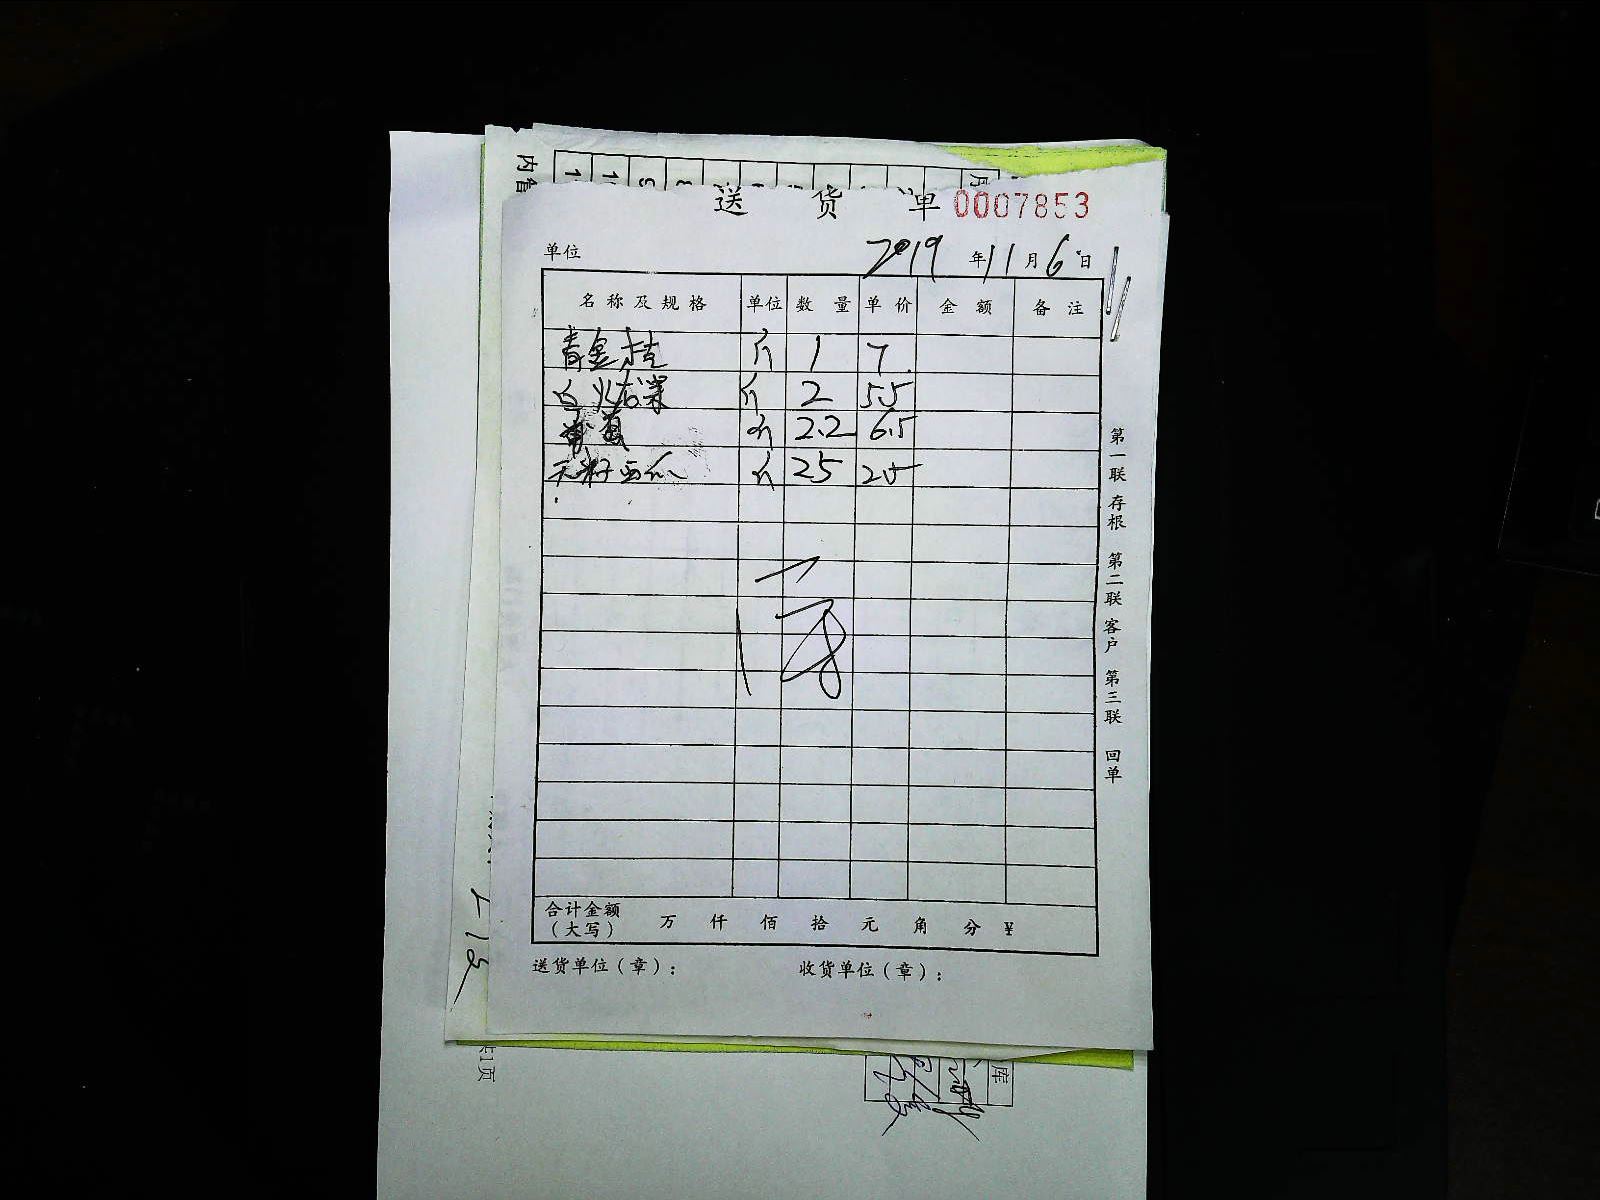 内
送 货 单 0007853
单位 2019 年 11 月 6 日
名称及规格 单位 数量 单价 金额 备注
青金桔 斤 1 7
白火龙果 斤 2 5.5
斤 2.2 6.5
无籽西瓜 斤 25 2.5
合计金额
(大写) 万 仟 佰 拾 元 角 分 ¥
送货单位(章): 收货单位(章):
第一联 存根 第二联 客户 第三联 回单
1页
库